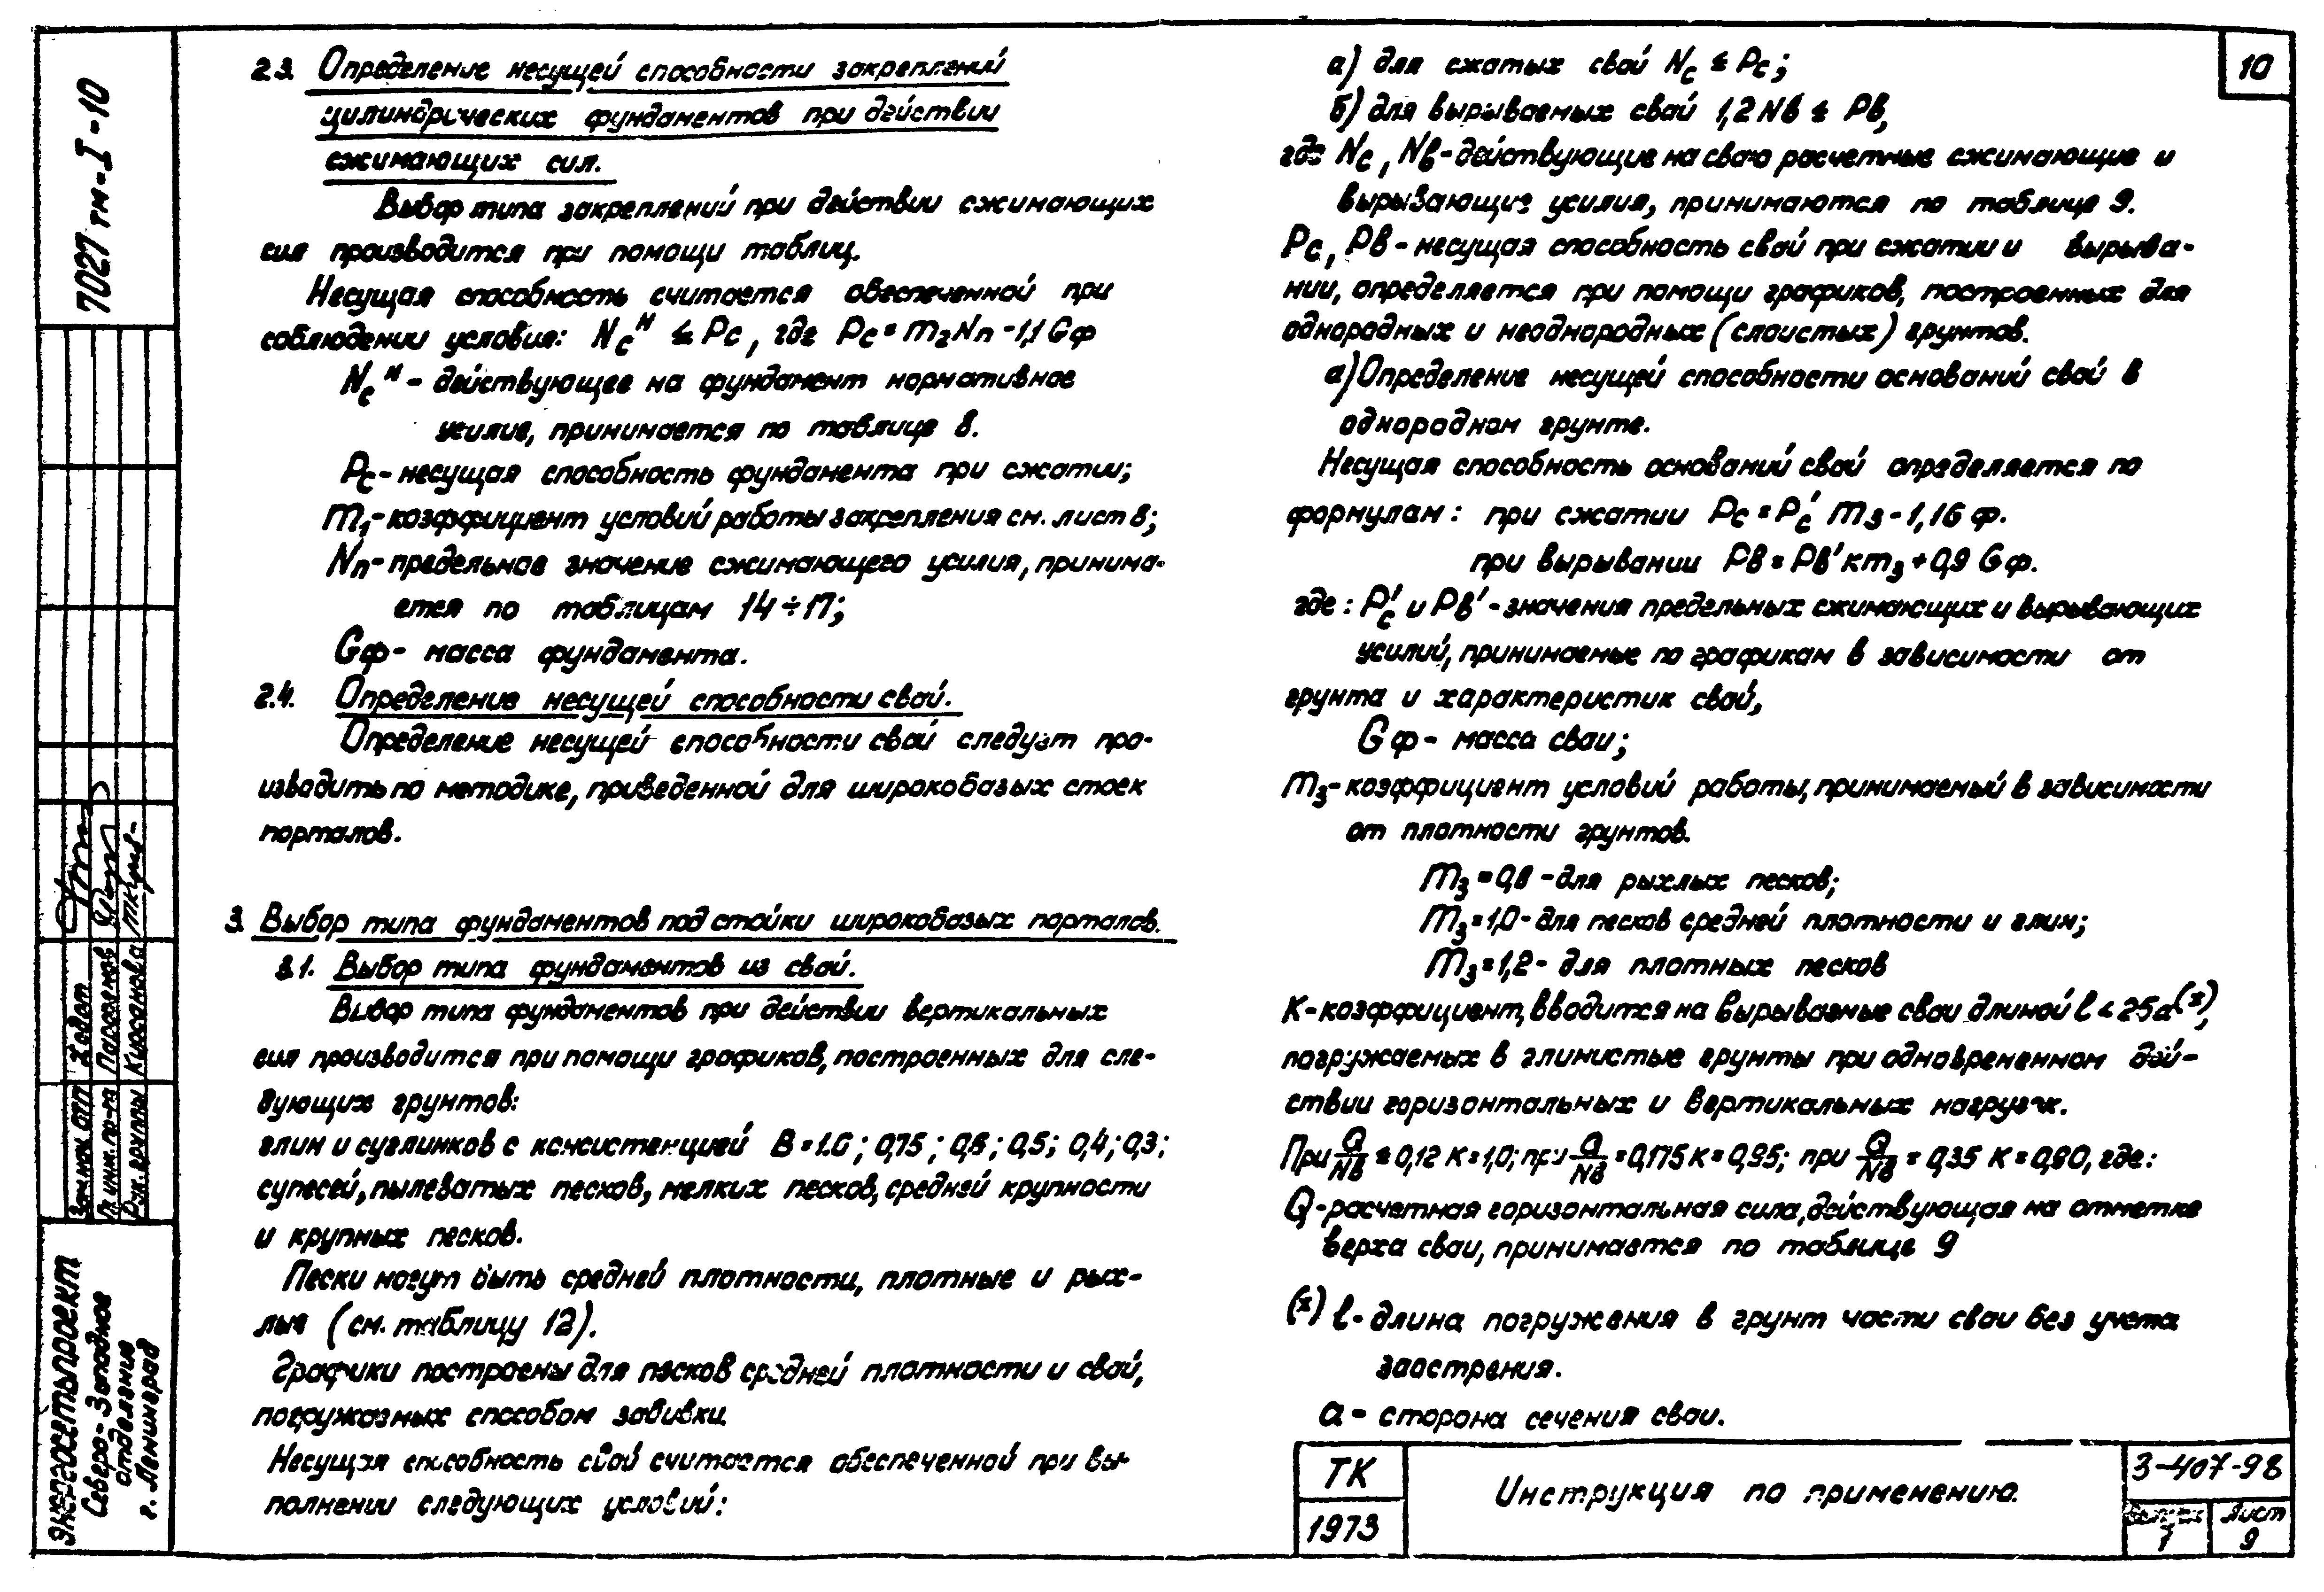 2.3. Определение несущей способности закреплений
цилиндрических фундаментов при действии
сжимающих сил.
Выбор типа закреплений при действии сжимающих
сил производится при помощи таблиц.
Несущая способность считается обеспеченной при
соблюдении условия: Nсᴴ ≤ Рс, где Рс = m₂Nп - 1,1 Gф
Nсᴴ - действующее на фундамент нормативное
усилие, принимается по таблице 8.
Рс - несущая способность фундамента при сжатии;
m₁ - коэффициент условий работы закрепления см. лист 8;
Nп - предельное значение сжимающего усилия, принима-
ется по таблицам 14÷17;
Gф - масса фундамента.
2.4. Определение несущей способности свай.
Определение несущей способности свай следует про-
изводить по методике, приведенной для широкобазых стоек
порталов.
3. Выбор типа фундаментов под стойки широкобазых порталов.
3.1. Выбор типа фундаментов из свай.
Выбор типа фундаментов при действии вертикальных
сил производится при помощи графиков, построенных для сле-
дующих грунтов:
глин и суглинков с консистенцией В = 1.0; 0,75; 0,6; 0,5; 0,4; 0,3;
супесей, пылеватых песков, мелких песков, средней крупности
и крупных песков.
Пески могут быть средней плотности, плотные и рых-
лые (см. таблицу 12).
Графики построены для песков средней плотности и свай,
погружаемых способом забивки.
Несущая способность свай считается обеспеченной при вы-
полнении следующих условий:
а) для сжатых свай Nс ≤ Рс;
б) для вырываемых свай 1,2 Nв ≤ Рв,
где Nс, Nв - действующие на сваю расчетные сжимающие и
вырывающие усилия, принимаются по таблице 9.
Рс, Рв - несущая способность свай при сжатии и вырыва-
нии, определяется при помощи графиков, построенных для
однородных и неоднородных (слоистых) грунтов.
а) Определение несущей способности оснований свай в
однородном грунте.
Несущая способность оснований свай определяется по
формулам: при сжатии Рс = Рс' m₃ - 1,1Gф.
при вырывании Рв = Рв' кm₃ + 0,9 Gф.
где: Рс' и Рв' - значения предельных сжимающих и вырывающих
усилий, принимаемые по графикам в зависимости от
грунта и характеристик свай,
Gф - масса сваи;
m₃ - коэффициент условий работы, принимаемый в зависимости
от плотности грунтов.
m₃ = 0,8 - для рыхлых песков;
m₃ = 1,0 - для песков средней плотности и глин;
m₃ = 1,2 - для плотных песков
К - коэффициент, вводится на вырываемые сваи длиной l < 25a⁽ˣ⁾,
погружаемых в глинистые грунты при одновременном дей-
ствии горизонтальных и вертикальных нагрузок.
При Q/Nв ≤ 0,12 К = 1,0; при Q/Nв = 0,175 К = 0,95; при Q/Nв = 0,35 К = 0,90, где:
Q - расчетная горизонтальная сила, действующая на отметке
верха сваи, принимается по таблице 9
(х) l - длина погружения в грунт части сваи без учета
заострения.
а - сторона сечения сваи.
10
7027 тм-I-10
Зам. нач. ОТП
Гл. инж. пр-та
Рук. группы
Парсенов
Кирсанова
Энергосетьпроект
Северо-Западное
отделение
г. Ленинград
ТК
1973
Инструкция по применению.
3-407-98
Выпуск
7
Лист
9